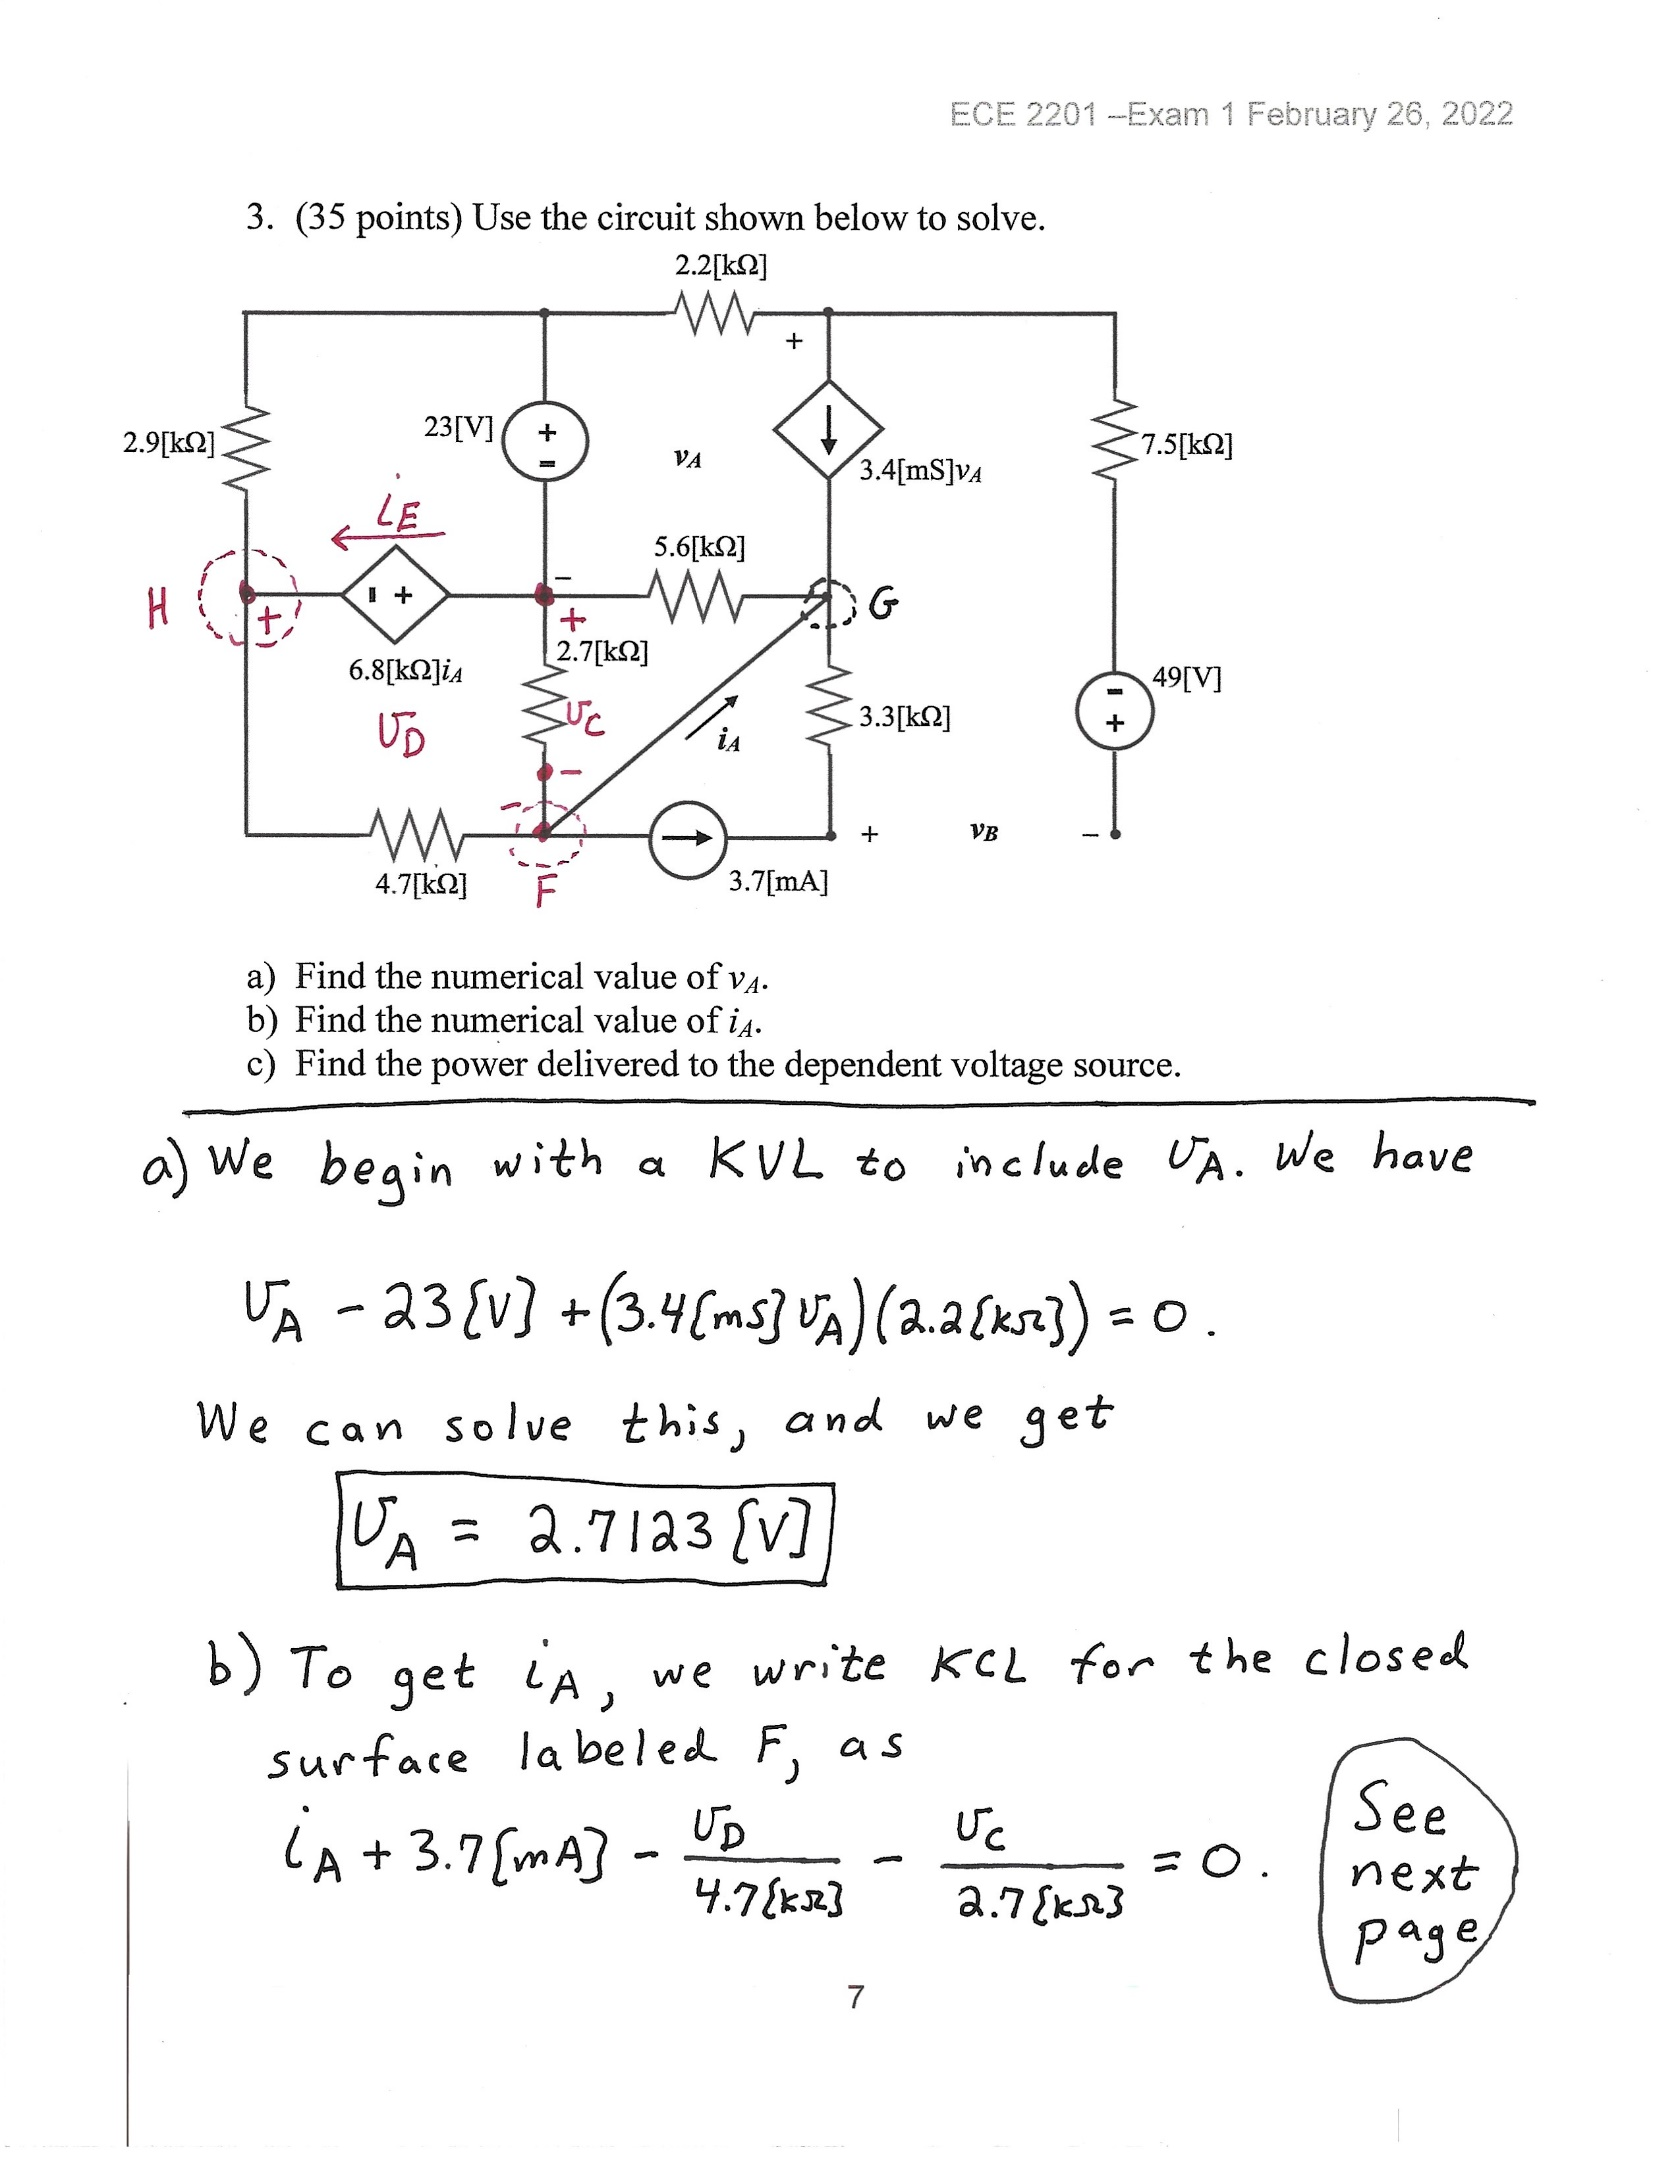 ECE 2201 –Exam 1 February 26, 2022
3. (35 points) Use the circuit shown below to solve.
2.2[kΩ]
+
2.9[kΩ]
23[V]
+
-
vA
3.4[mS]vA
7.5[kΩ]
iE
5.6[kΩ]
H
+
- +
-
+
G
6.8[kΩ]iA
2.7[kΩ]
49[V]
-
+
vD
vC
iA
3.3[kΩ]
-
-
+ vB -
4.7[kΩ]
F
3.7[mA]
a) Find the numerical value of vA.
b) Find the numerical value of iA.
c) Find the power delivered to the dependent voltage source.
a) We begin with a KVL to include vA. We have
vA - 23[V] + (3.4[mS] vA)(2.2[kΩ]) = 0.
We can solve this, and we get
vA = 2.7123 [V]
b) To get iA, we write KCL for the closed
surface labeled F, as
iA + 3.7[mA] - vD/4.7[kΩ] - vC/2.7[kΩ] = 0.
See
next
page
7